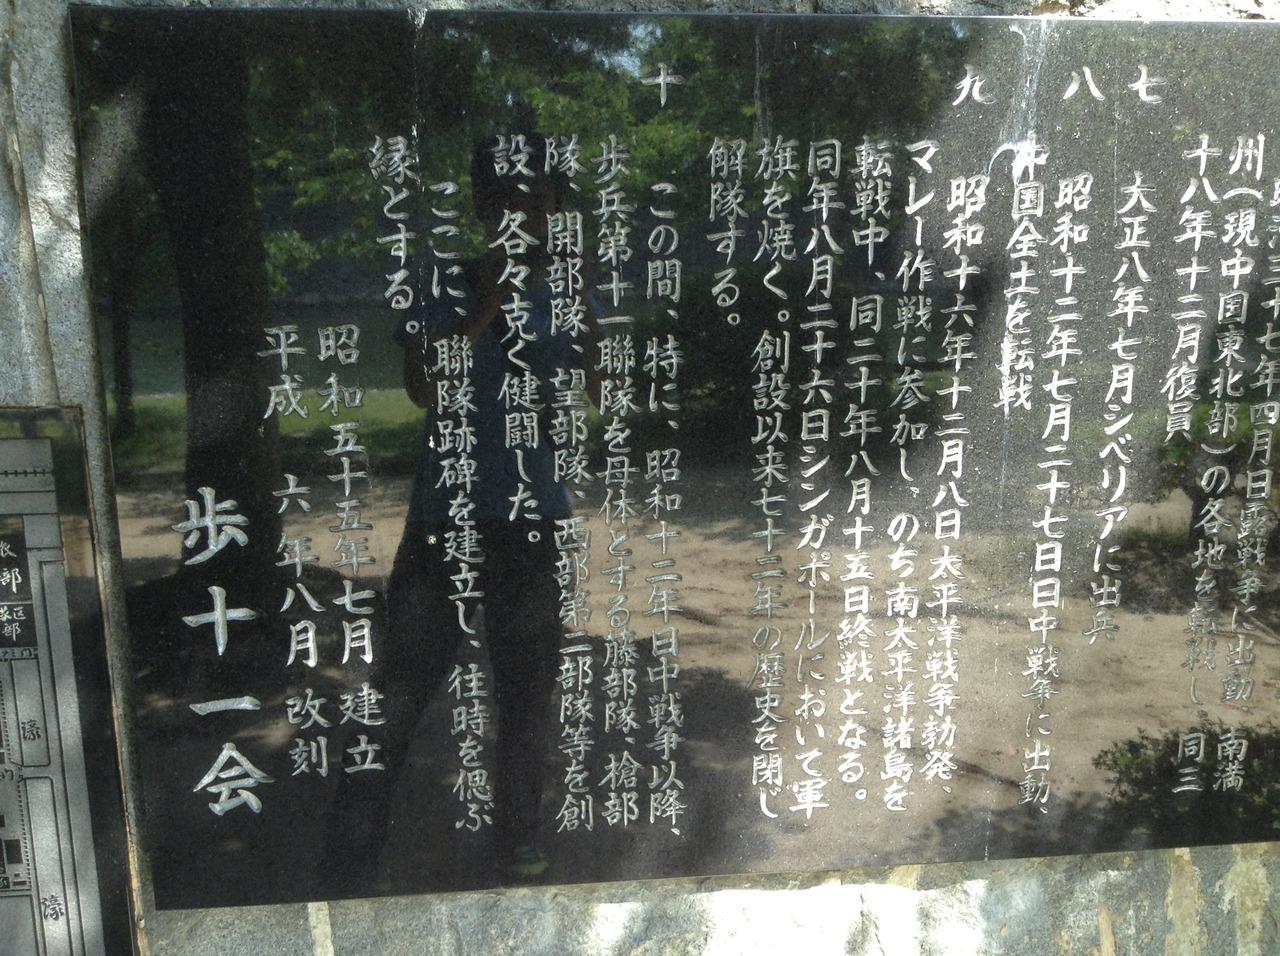 明治三十七年四月日露戦争に出動、南満
州(現中国東北部)の各地を転戦し同三
十八年十二月復員
七
大正八年七月シベリアに出兵
八
昭和十二年七月二十七日日中戦争に出動、
中国全土を転戦
九
昭和十六年十二月八日太平洋戦争勃発、
マレー作戦に参加し、のち南太平洋諸島を
転戦中、同二十年八月十五日終戦となる。
同年八月二十六日シンガポールにおいて軍
旗を焼く。創設以来七十二年の歴史を閉じ
解隊する。
十
この間、特に、昭和十二年日中戦争以降、
歩兵第十一聯隊を母体とする藤部隊、槍部
隊、開部隊、望部隊、西部第二部隊等を創
設、各々克く健闘した。
ここに、聯隊跡碑を建立し、往時を偲ぶ
縁とする。
昭和五十五年七月 建立
平成 六年八月 改刻
歩十一会
濠
濠